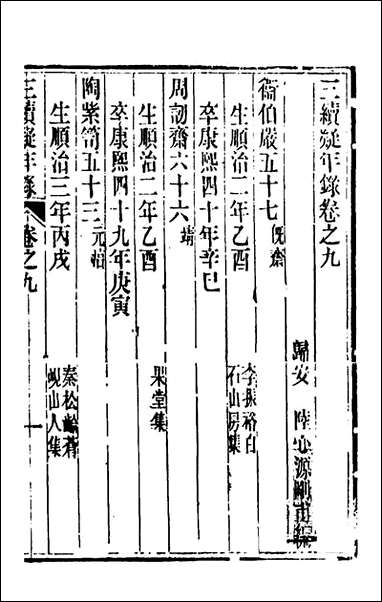 三續疑年錄卷之九
歸安 陸心源剛甫編
衞伯嚴五十七 旣齋
生順治二年乙酉 李振裕白石山房集
卒康熙四十年辛巳
周韌齋六十六 靖
生順治二年乙酉 果堂集
卒康熙四十九年庚寅
陶紫笥五十三 元淳
生順治三年丙戌 秦松齡蒼峴山人集
三續疑年錄 卷之九 一